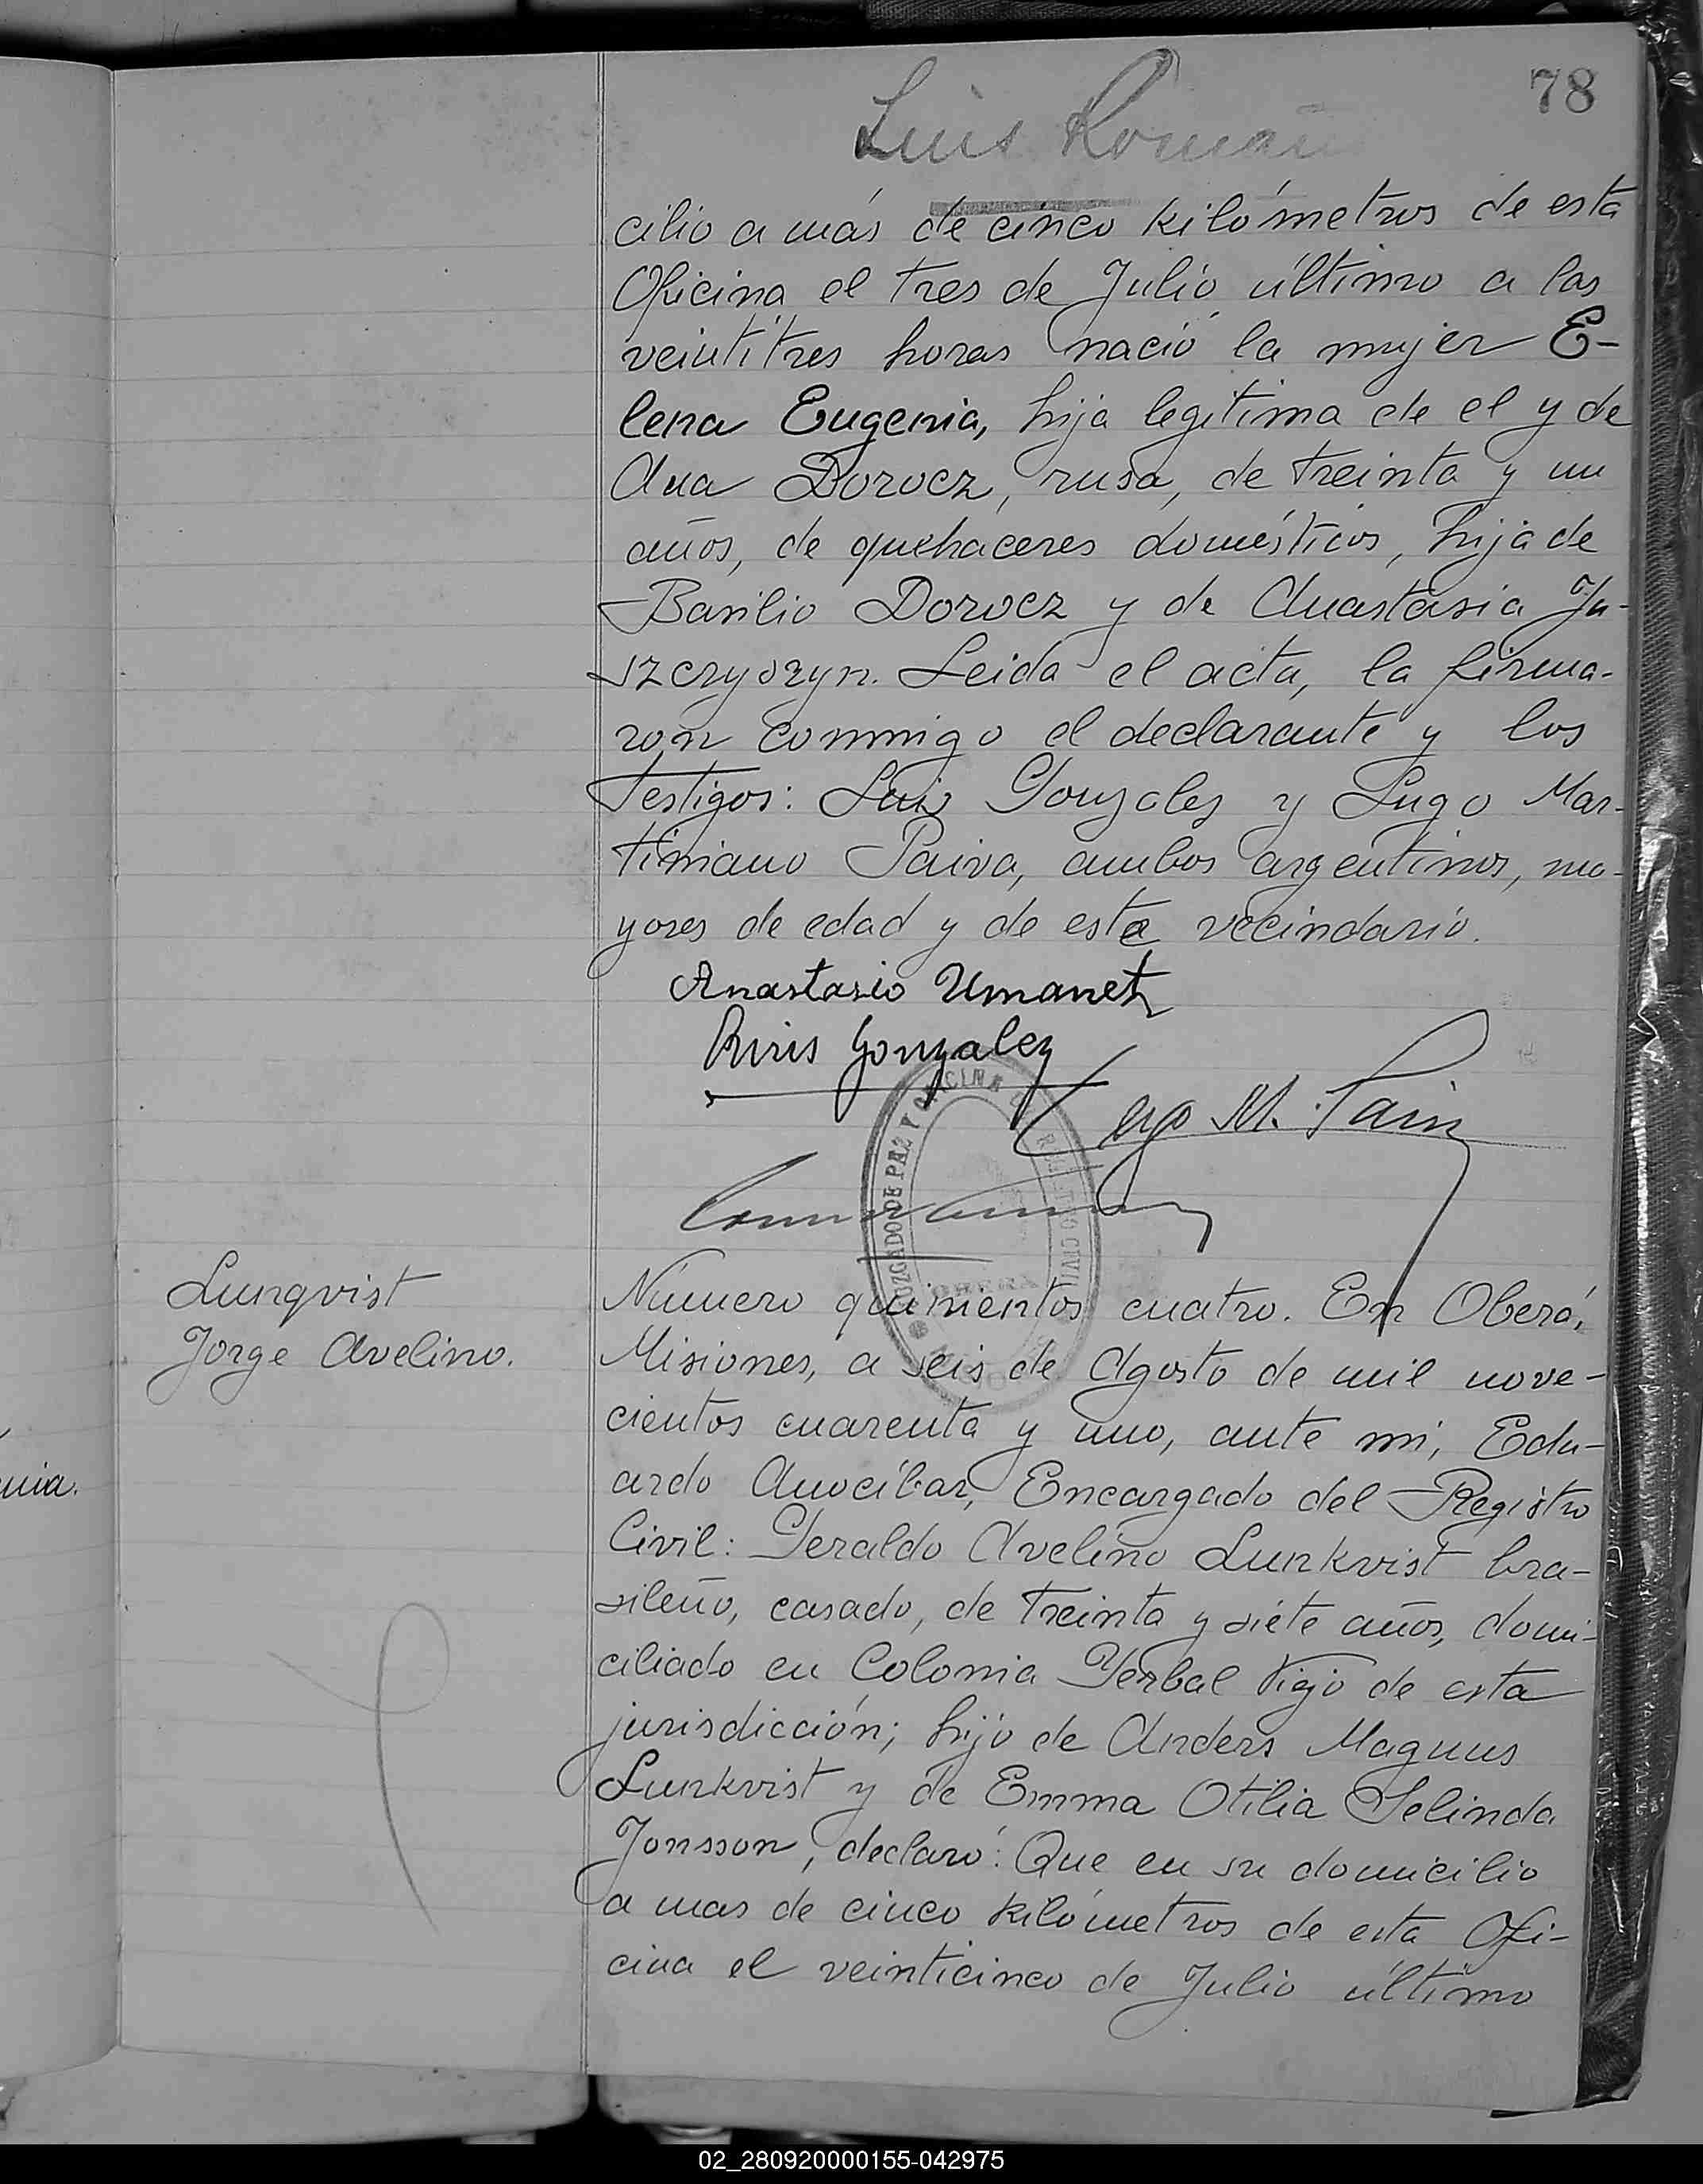 78
Luis Roman
cilio a más de cinco kilómetros de esta
Oficina el tres de Julio último a las
veintitres horas nació la mujer E-
lena Eugenia, hija legitima de el y de
Ana Dorocz, rusa, de treinta y un
años, de quehaceres domésticos, hija de
Basilio Dorocz y de Anastasia Ju-
szczyszyn. Leida el acta, la firma-
ron conmigo el declarante y los
testigos: Luis Gonzalez y Lugo Mar-
timiano Paiva, ambos argentinos, ma-
yores de edad y de este vecindario.
Anastasio Umanetz
Luis Gonzalez
M. Paiva
JUZGADO DE PAZ Y OFICINA REGISTRO CIVIL
OBERA
Lunqvist
Jorge Avelino.
Número quinientos cuatro. En Oberá,
Misiones, a seis de Agosto de mil nove-
cientos cuarenta y uno, ante mi, Edu-
ardo Anocíbar, Encargado del Registro
Civil: Geraldo Avelino Lunkvist bra-
sileño, casado, de treinta y siete años, domi-
ciliado en Colonia Yerbal Viejo de esta
jurisdicción; hijo de Anders Magnus
Lunkvist y de Emma Otilia Selinda
Jonsson, declaró: Que en su domicilio
a mas de cinco kilómetros de esta Ofi-
cina el veinticinco de Julio último
nia.
02_280920000155-042975